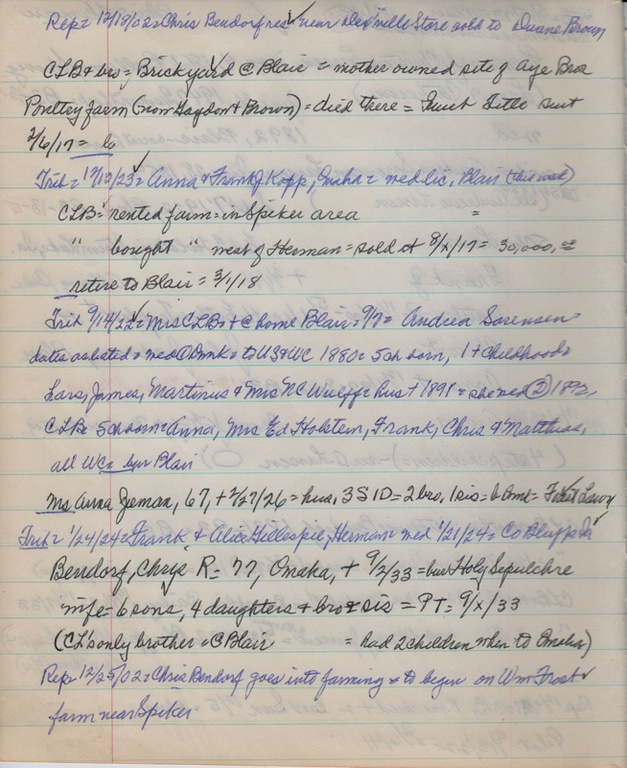 Rep = 12/18/02 = Chris Bendorf res near ville Store sold to Duane Brown
CLB & bro = Brickyard @ Blair = mother owned site of Aye Bros
Poultry farm (now Gaydon & Brown) = died there = Quiet Title suit
2/6/17 = 6
Trib = 12/13/23 = Anna & Frank J Kopp, Omaha = wed lic, Blair (this week)
CLB = rented farm = in Spiker area =
" bought " west of Herman = sold it 8/x/17 = 30,000,00
retire to Blair = 3/1/18
Trib 9/14/22 = Mrs CLB = + @ home Blair = 9/7 = Andrea Sorensen =
dates as listed = wed @ Dmk = to US & WC 1880 = 5ch born, 1 + childhood =
Lars, James, Martinus & Mrs NC Wulff = hus + 1891 = she wed (2) 1892,
CLB = 5ch born = Anna, Mrs Ed Holstein, Frank, Chris & Matthias,
all WC = bur Blair
Ms Anna Jeman, 67, + 2/27/26 = hus, 3 S 1 D = 2 bro, 1 sis = b Dmk = Forest Lawn
Trib = 1/24/24 = Frank & Alice Gillespie, Herman wed 1/21/24 = Co Bluffs Ia
Bendorf, Chris R = 77, Omaha, + 9/2/33 = bur Holy Sepulchre
wife = 6 sons, 4 daughters & bro & sis = PT = 9/x/33
(CL's only brother = @ Blair = had 2 children when to Omaha)
Rep = 12/25/02 = Chris Bendorf goes into farming = to begin on Wm Frost
farm near Spiker